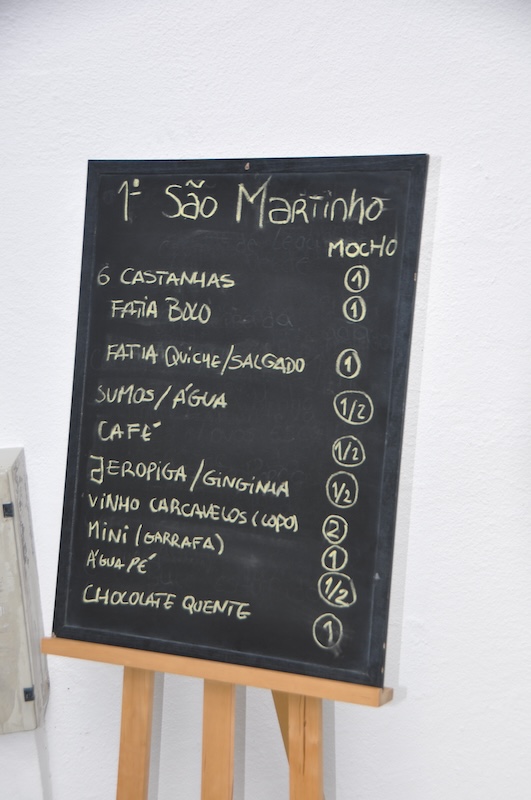 1º São Martinho
MOCHO
6 CASTANHAS 1
FATIA BOLO 1
FATIA QUICHE/SALGADO 1
SUMOS/ÁGUA 1/2
CAFÉ 1/2
JEROPIGA/GINGINHA 1/2
VINHO CARCAVELOS (COPO) 2
MINI (GARRAFA) 1
ÁGUA PÉ 1/2
CHOCOLATE QUENTE 1